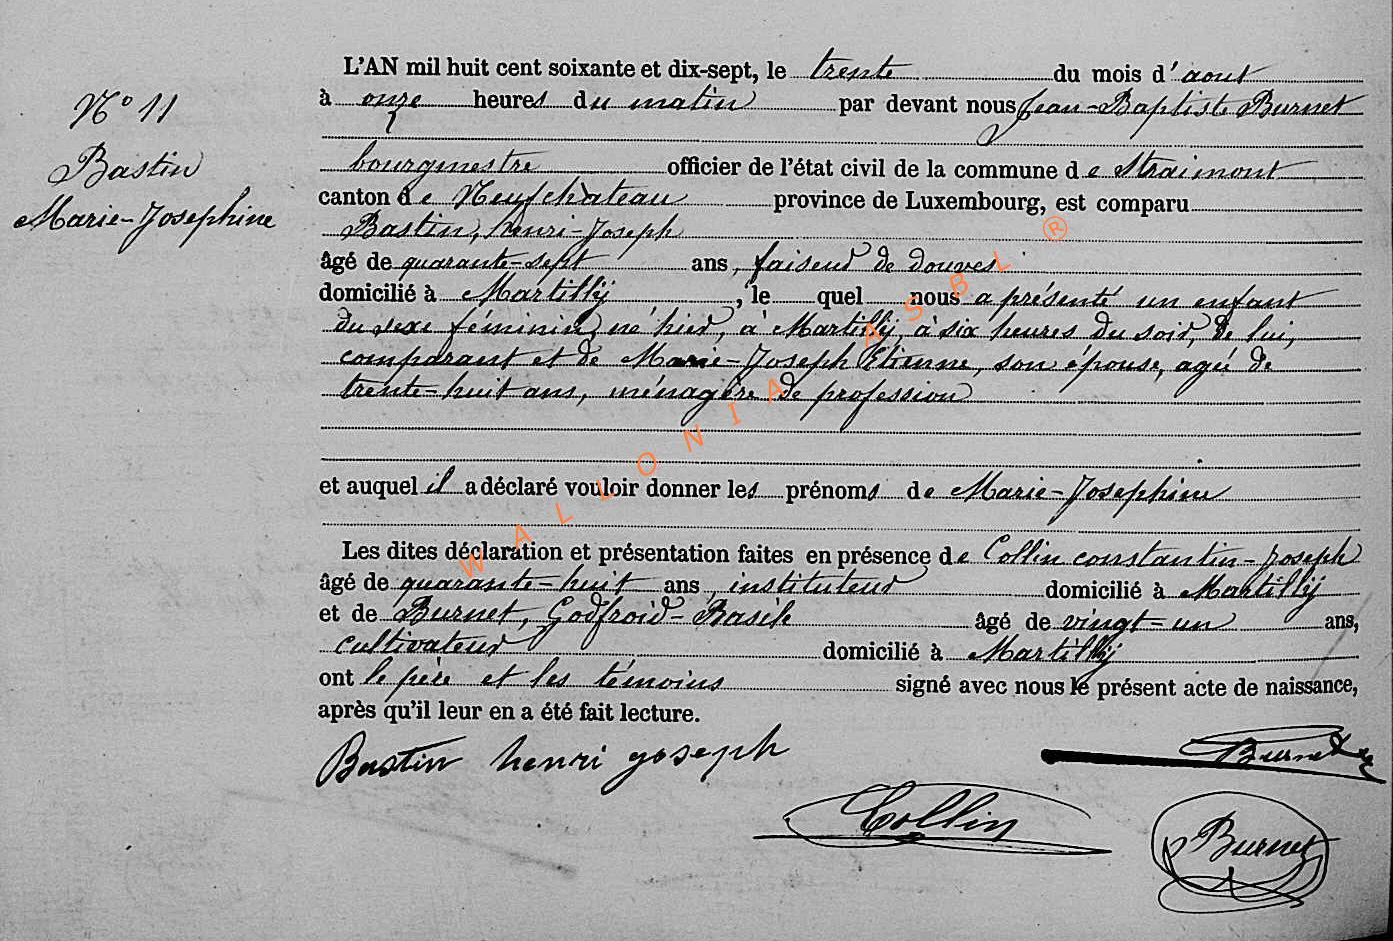 L'AN mil huit cent soixante et dix-sept, le trente du mois d'aout
N° 11
à onze heures du matin par devant nous Jean-Baptiste Burnet
Bastin
bourgmestre officier de l'état civil de la commune de Straimont
Marie-Josephine
canton de Neufchâteau province de Luxembourg, est comparu
Bastin, henri-Joseph
âgé de quarante-sept ans, faiseur de douves
domicilié à Martilly, le quel nous a présenté un enfant
du sexe féminin, né hier, à Martilly, à six heures du soir, de lui,
comparant et de Marie-Joseph Etienne, son épouse, agée de
trente-huit ans, ménagère de profession
et auquel il a déclaré vouloir donner les prénoms de Marie-Josephine
Les dites déclaration et présentation faites en présence de Collin constantin-Joseph
âgé de quarante-huit ans, instituteur domicilié à Martilly
et de Burnet, Godfroid-Basile âgé de vingt-un ans,
cultivateur domicilié à Martilly
ont le père et les témoins signé avec nous le présent acte de naissance,
après qu'il leur en a été fait lecture.
Bastin henri joseph
Burnet
Collin
Burnet
WALLONIA ASBL ®